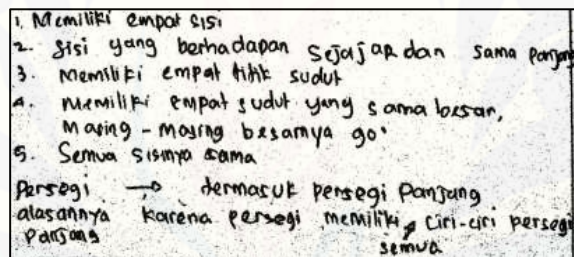 1. Memiliki empat sisi
2. sisi yang berhadapan sejajar dan sama panjang
3. memiliki empat titik sudut
4. memiliki empat sudut yang sama besar,
masing - masing besarnya 90°
5. Semua sisinya sama
Persegi → termasuk persegi Panjang
alasannya karena persegi memiliki ciri-ciri persegi
panjang semua